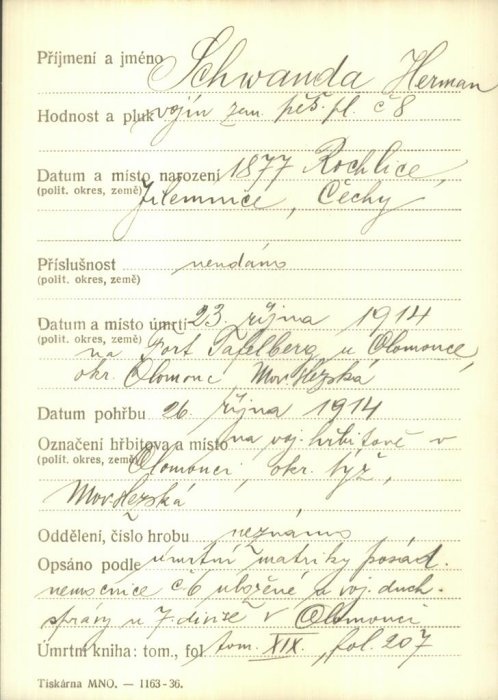 Příjmení a jméno Schwanda Herman
Hodnost a pluk vojín zem. pěš. pl. č 8
Datum a místo narození 1877 Rochlice,
(polit. okres, země) Jilemnice, Čechy
Příslušnost neudáno
(polit. okres, země)
Datum a místo úmrtí 23. října 1914
(polit. okres, země) na Fort Tafelberg u Olomouce,
okr. Olomouc Mor. Slezská
Datum pohřbu 26. října 1914
Označení hřbitova a místo na voj. hřbitově v
(polit. okres, země) Olomouci, okr. týž,
Mor. Slezská
Oddělení, číslo hrobu neznámo
Opsáno podle úmrtní matriky posád.
nemocnice č 6 uložené u voj. duch.
správy u 7. divise v Olomouci
Úmrtní kniha: tom., fol. tom. XIX., fol. 207
Tiskárna MNO. — 1163-36.